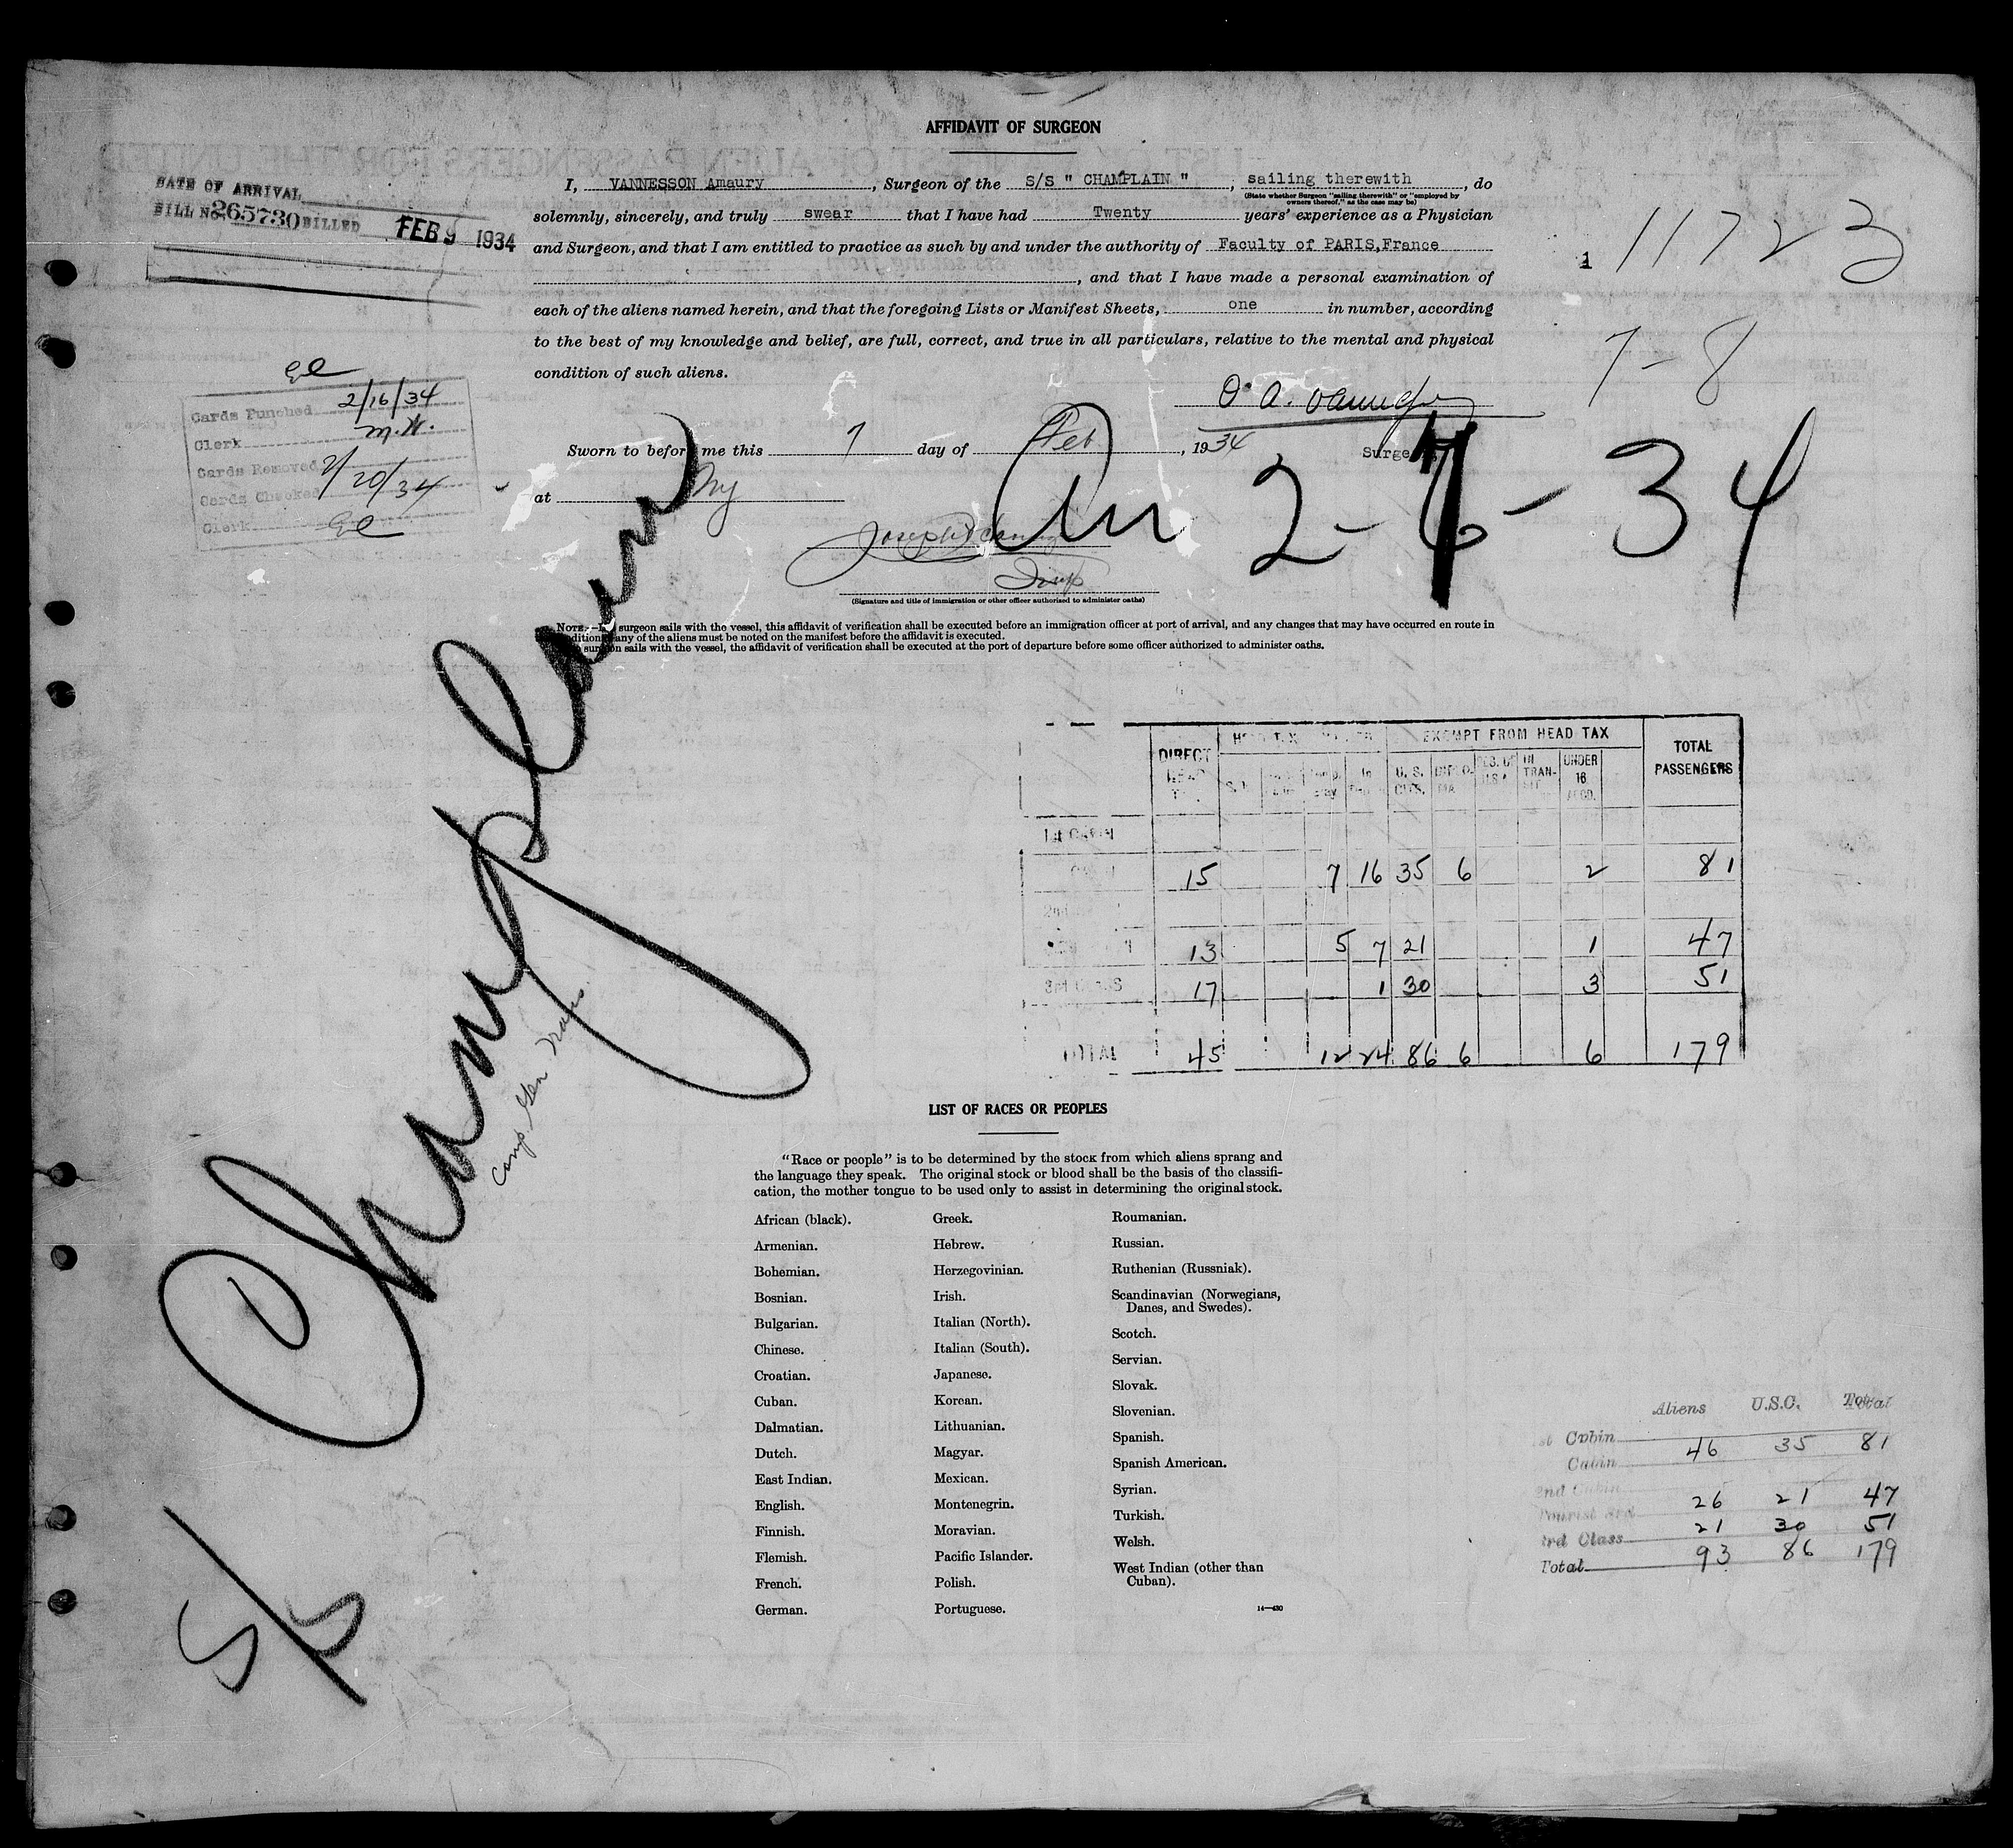 AFFIDAVIT OF SURGEON
DATE OF ARRIVAL
BILL No. 265730 BILLED FEB 9 1934
I, VANNESSON Amaury, Surgeon of the S/S " CHAMPLAIN ", sailing therewith, do
(State whether Surgeon "sailing therewith" or "employed by
owners thereof," as the case may be)
solemnly, sincerely, and truly swear that I have had Twenty years' experience as a Physician
and Surgeon, and that I am entitled to practice as such by and under the authority of Faculty of PARIS, France
, and that I have made a personal examination of
each of the aliens named herein, and that the foregoing Lists or Manifest Sheets, one in number, according
to the best of my knowledge and belief, are full, correct, and true in all particulars, relative to the mental and physical
condition of such aliens.
1 11723
7-8
Cards Punched 2/16/34
Clerk M.W.
Cards Removed
Cards Checked 2/20/34
Clerk
Sworn to before me this 7 day of Feb, 1934 Surgeon
at NY
2-7-34
Insp
(Signature and title of immigration or other officer authorized to administer oaths)
NOTE.— surgeon sails with the vessel, this affidavit of verification shall be executed before an immigration officer at port of arrival, and any changes that may have occurred en route in
condition any of the aliens must be noted on the manifest before the affidavit is executed.
surgeon sails with the vessel, the affidavit of verification shall be executed at the port of departure before some officer authorized to administer oaths.
S/S Champlain
Comp. Gen Trans.
DIRECT HEAD TAX EXEMPT FROM HEAD TAX TOTAL PASSENGERS
U. S. CITS. DIPLOMA RES. OF U.S.A. IN TRANSIT UNDER 16 ACCD.
1st CABIN
CABIN 15 7 16 35 6 2 81
13 5 7 21 1 47
3rd CLASS 17 1 30 3 51
TOTAL 45 12 24 86 6 6 179
LIST OF RACES OR PEOPLES
"Race or people" is to be determined by the stock from which aliens sprang and
the language they speak. The original stock or blood shall be the basis of the classifi-
cation, the mother tongue to be used only to assist in determining the original stock.
African (black).
Armenian.
Bohemian.
Bosnian.
Bulgarian.
Chinese.
Croatian.
Cuban.
Dalmatian.
Dutch.
East Indian.
English.
Finnish.
Flemish.
French.
German.
Greek.
Hebrew.
Herzegovinian.
Irish.
Italian (North).
Italian (South).
Japanese.
Korean.
Lithuanian.
Magyar.
Mexican.
Montenegrin.
Moravian.
Pacific Islander.
Polish.
Portuguese.
Roumanian.
Russian.
Ruthenian (Russniak).
Scandinavian (Norwegians,
Danes, and Swedes).
Scotch.
Servian.
Slovak.
Slovenian.
Spanish.
Spanish American.
Syrian.
Turkish.
Welsh.
West Indian (other than
Cuban).
14—430
Aliens U.S.C. Total
1st Cabin
Cabin 46 35 81
2nd Cabin
Tourist 3rd 26 21 47
3rd Class 21 30 51
Total 93 86 179